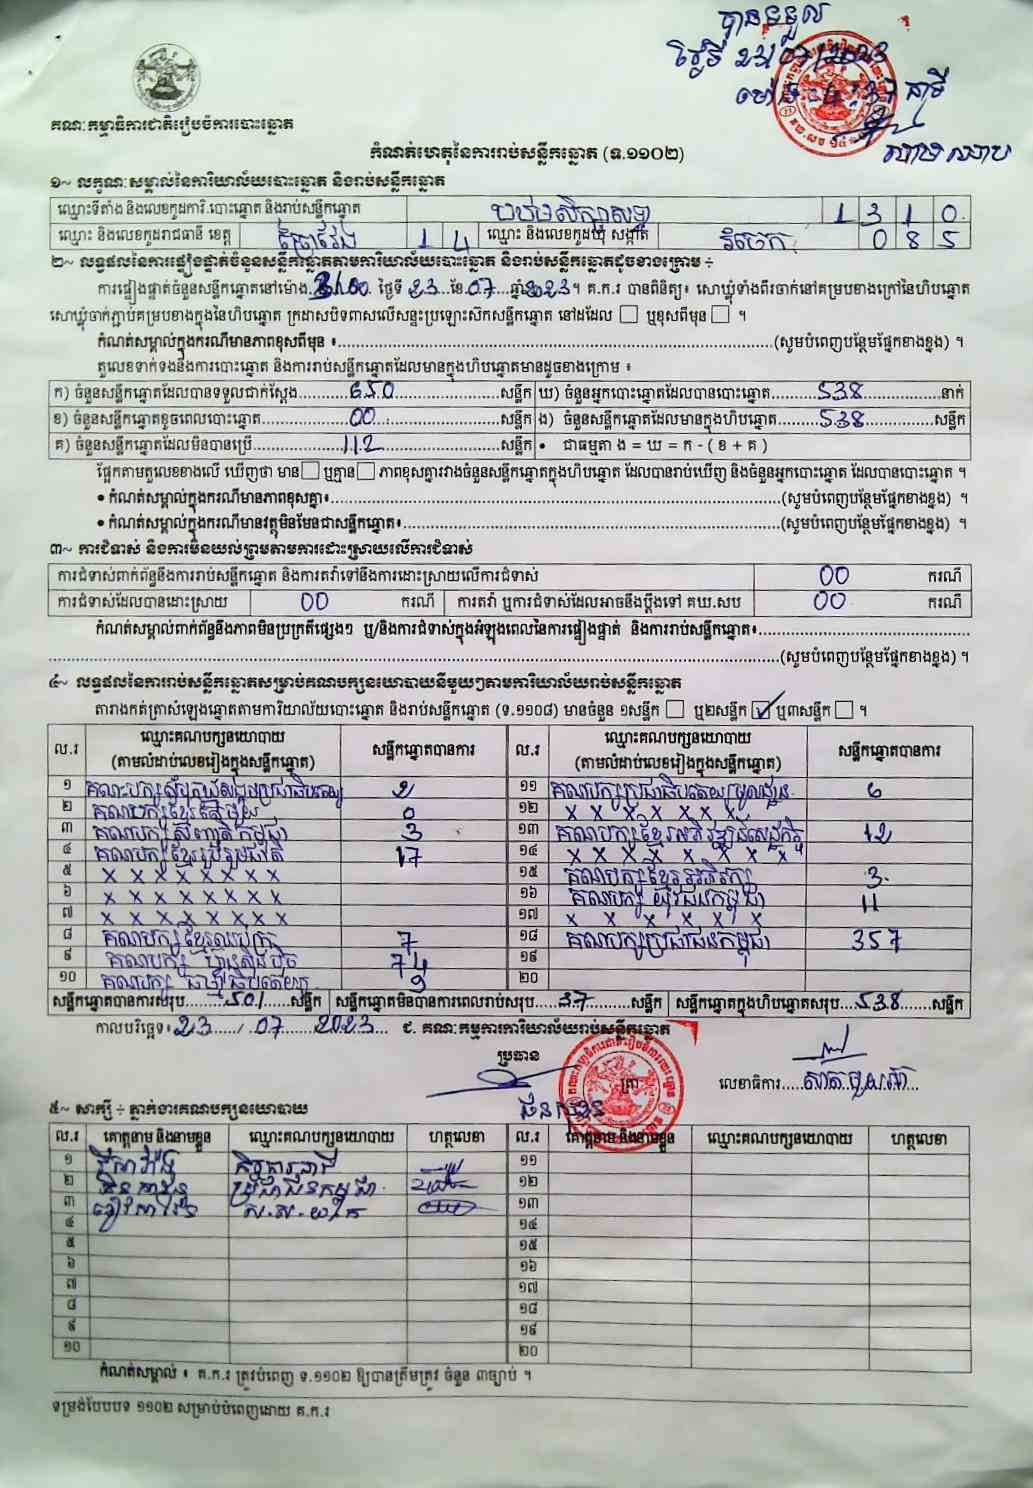 បានទទួល
ថ្ងៃទី ២៤/០៧/២០២៣
គណៈកម្មាធិការជាតិរៀបចំការបោះឆ្នោត
កំណត់ហេតុនៃការរាប់សន្លឹកឆ្នោត (ទ.១១០២)
១~ លក្ខណៈសម្គាល់នៃការិយាល័យបោះឆ្នោត និងរាប់សន្លឹកឆ្នោត
ឈ្មោះទីតាំង និងលេខកូដការិ.បោះឆ្នោត និងរាប់សន្លឹកឆ្នោត 1 3 1 0
ឈ្មោះ និងលេខកូដរាជធានី ខេត្ត ព្រៃវែង 1 4 ឈ្មោះ និងលេខកូដឃុំ សង្កាត់ 0 8 5
២~ លទ្ធផលនៃការផ្ទៀងផ្ទាត់ចំនួនសន្លឹកឆ្នោតតាមការិយាល័យបោះឆ្នោត និងរាប់សន្លឹកឆ្នោតដូចខាងក្រោម ÷
ការផ្ទៀងផ្ទាត់ចំនួនសន្លឹកឆ្នោតនៅម៉ោង ថ្ងៃទី 23 ខែ 07 ឆ្នាំ 2023 ។ គ.ក.រ បានពិនិត្យ៖ សោឃ្លុំទាំងពីរចាក់នៅគម្របខាងក្រៅនៃហិបឆ្នោត
សោឃ្លុំចាក់ភ្ជាប់គម្របខាងក្នុងនៃហិបឆ្នោត ក្រដាសបិទពាសលើសន្ទះប្រឡោះស៊កសន្លឹកឆ្នោត នៅដដែល ☐ ឬខុសពីមុន ☐ ។
កំណត់សម្គាល់ក្នុងករណីមានភាពខុសពីមុន ៖ (សូមបំពេញបន្ថែមផ្នែកខាងខ្នង) ។
តួលេខទាក់ទងនឹងការបោះឆ្នោត និងការរាប់សន្លឹកឆ្នោតដែលមានក្នុងហិបឆ្នោតមានដូចខាងក្រោម ៖
ក) ចំនួនសន្លឹកឆ្នោតដែលបានទទួលជាក់ស្តែង 650 សន្លឹក ឃ) ចំនួនអ្នកបោះឆ្នោតដែលបានបោះឆ្នោត 538 នាក់
ខ) ចំនួនសន្លឹកឆ្នោតខូចពេលបោះឆ្នោត 00 សន្លឹក ង) ចំនួនសន្លឹកឆ្នោតដែលមានក្នុងហិបឆ្នោត 538 សន្លឹក
គ) ចំនួនសន្លឹកឆ្នោតដែលមិនបានប្រើ 112 សន្លឹក • ជាធម្មតា ង = ឃ = ក - ( ខ + គ )
ផ្អែកតាមតួលេខខាងលើ ឃើញថា មាន ☐ ឬគ្មាន ☐ ភាពខុសគ្នារវាងចំនួនសន្លឹកឆ្នោតក្នុងហិបឆ្នោត ដែលបានរាប់ឃើញ និងចំនួនអ្នកបោះឆ្នោត ដែលបានបោះឆ្នោត ។
• កំណត់សម្គាល់ក្នុងករណីមានភាពខុសគ្នា៖ (សូមបំពេញបន្ថែមផ្នែកខាងខ្នង) ។
• កំណត់សម្គាល់ក្នុងករណីមានវត្ថុមិនមែនជាសន្លឹកឆ្នោត៖ (សូមបំពេញបន្ថែមផ្នែកខាងខ្នង) ។
៣~ ការជំទាស់ និងការមិនយល់ព្រមតាមការដោះស្រាយលើការជំទាស់
ការជំទាស់ពាក់ព័ន្ធនឹងការរាប់សន្លឹកឆ្នោត និងការតវ៉ាទៅនឹងការដោះស្រាយលើការជំទាស់ 00 ករណី
ការជំទាស់ដែលបានដោះស្រាយ 00 ករណី ការតវ៉ា ឬការជំទាស់ដែលអាចនឹងប្តឹងទៅ គឃ.សប 00 ករណី
កំណត់សម្គាល់ពាក់ព័ន្ធនឹងភាពមិនប្រក្រតីផ្សេងៗ ឬ/និងការជំទាស់ក្នុងអំឡុងពេលនៃការផ្ទៀងផ្ទាត់ និងការរាប់សន្លឹកឆ្នោត៖
(សូមបំពេញបន្ថែមផ្នែកខាងខ្នង) ។
៤~ លទ្ធផលនៃការរាប់សន្លឹកឆ្នោតសម្រាប់គណបក្សនយោបាយនីមួយៗតាមការិយាល័យរាប់សន្លឹកឆ្នោត
តារាងកត់ត្រាសំឡេងឆ្នោតតាមការិយាល័យបោះឆ្នោត និងរាប់សន្លឹកឆ្នោត (ទ.១១០៨) មានចំនួន ១សន្លឹក ☐ ឬ២សន្លឹក ☑ ឬ៣សន្លឹក ☐ ។
ល.រ ឈ្មោះគណបក្សនយោបាយ (តាមលំដាប់លេខរៀងក្នុងសន្លឹកឆ្នោត) សន្លឹកឆ្នោតបានការ ល.រ ឈ្មោះគណបក្សនយោបាយ (តាមលំដាប់លេខរៀងក្នុងសន្លឹកឆ្នោត) សន្លឹកឆ្នោតបានការ
១ 2 ១១ 6
២ គណបក្សខ្មែរតែមួយ 0 ១២ x x x x x x x
៣ 3 ១៣ គណបក្សខ្មែរអភិវឌ្ឍន៍សេដ្ឋកិច្ច 12
៤ គណបក្សខ្មែររួបរួមជាតិ 17 ១៤ x x x x x x x x
៥ x x x x x x x x ១៥ គណបក្សខ្មែរអភិរក្ស 3
៦ x x x x x x x x ១៦ គណបក្ស យុវជនកម្ពុជា 11
៧ x x x x x x x x ១៧ x x x x x x
៨ 7 ១៨ គណបក្សប្រជាជនកម្ពុជា 357
៩ គណបក្ស ហ៊្វុនស៊ិនប៉ិច 74 ១៩
១០ គណបក្ស ធម្មាធិបតេយ្យ 9 ២០
សន្លឹកឆ្នោតបានការសរុប 501 សន្លឹក សន្លឹកឆ្នោតមិនបានការពេលរាប់សរុប 37 សន្លឹក សន្លឹកឆ្នោតក្នុងហិបឆ្នោតសរុប 538 សន្លឹក
កាលបរិច្ឆេទ៖ 23 / 07 / 2023 ជ. គណៈកម្មការការិយាល័យរាប់សន្លឹកឆ្នោត
ប្រធាន ត្រា លេខាធិការ
៥~ សាក្សី ÷ ភ្នាក់ងារគណបក្សនយោបាយ
ល.រ គោត្តនាម និងនាមខ្លួន ឈ្មោះគណបក្សនយោបាយ ហត្ថលេខា ល.រ គោត្តនាម និងនាមខ្លួន ឈ្មោះគណបក្សនយោបាយ ហត្ថលេខា
១ ១១
២ ប្រជាជនកម្ពុជា ១២
៣ ១៣
៤ ១៤
៥ ១៥
៦ ១៦
៧ ១៧
៨ ១៨
៩ ១៩
១០ ២០
កំណត់សម្គាល់ ៖ គ.ក.រ ត្រូវបំពេញ ទ.១១០២ ឱ្យបានត្រឹមត្រូវ ចំនួន ៣ច្បាប់ ។
ទម្រង់បែបបទ ១១០២ សម្រាប់បំពេញដោយ គ.ក.រ